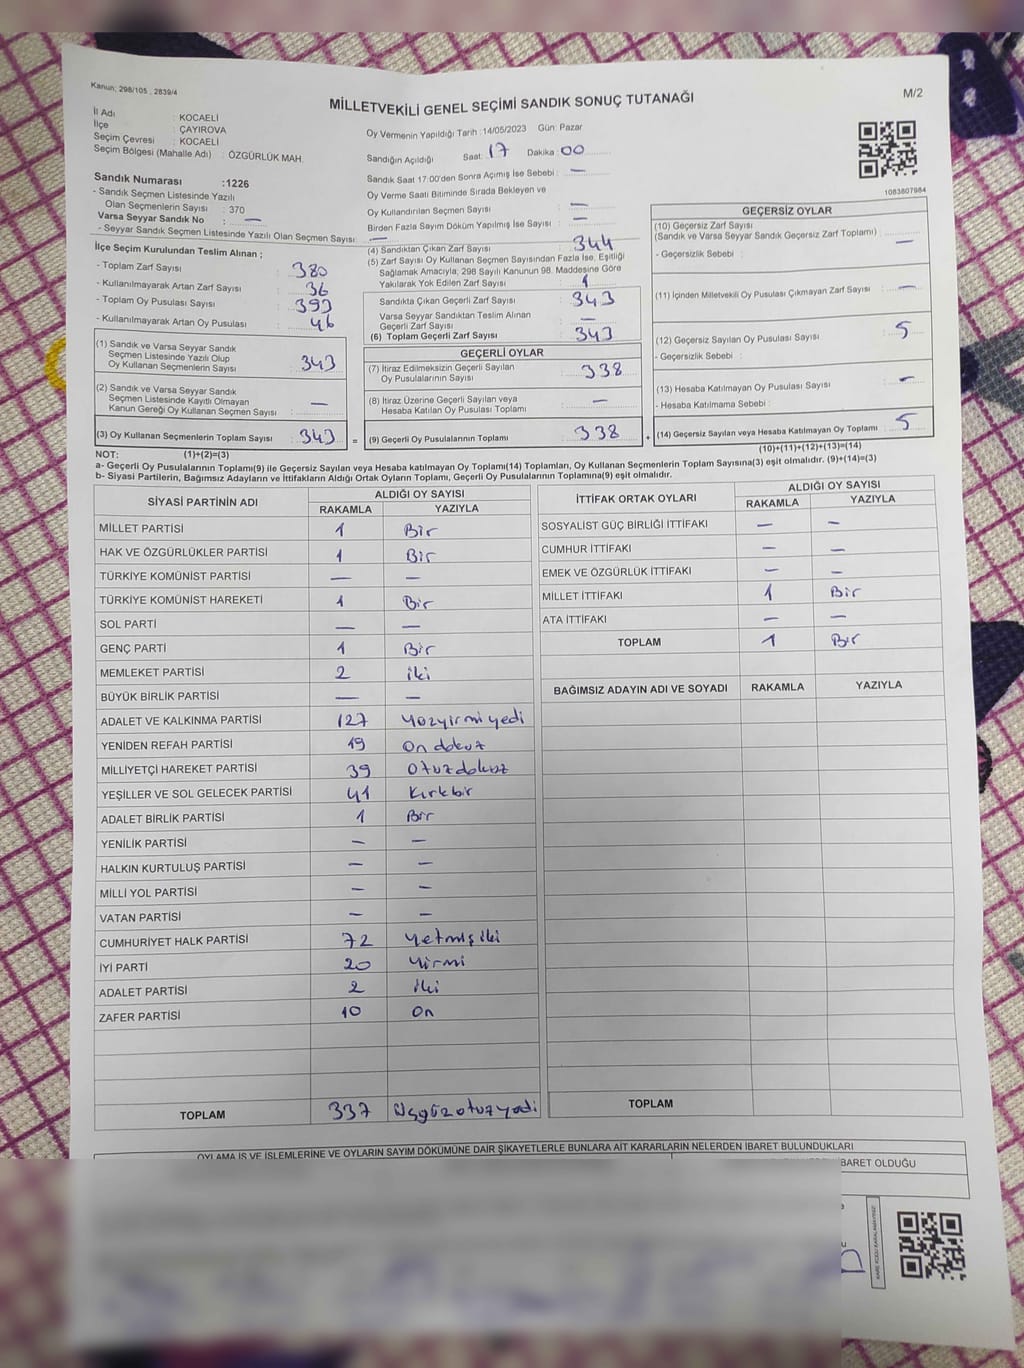 Kanun; 298/105 , 2839/4
MİLLETVEKİLİ GENEL SEÇİMİ SANDIK SONUÇ TUTANAĞI
M/2
İl Adı : KOCAELİ
İlçe : ÇAYIROVA
Seçim Çevresi : KOCAELİ
Seçim Bölgesi (Mahalle Adı) : ÖZGÜRLÜK MAH.
Sandık Numarası :1226
- Sandık Seçmen Listesinde Yazılı
Olan Seçmenlerin Sayısı : 370
Varsa Seyyar Sandık No : —
- Seyyar Sandık Seçmen Listesinde Yazılı Olan Seçmen Sayısı: —
Oy Vermenin Yapıldığı Tarih :14/05/2023 Gün: Pazar
Sandığın Açıldığı Saat: 17 Dakika :00
Sandık Saat 17:00'den Sonra Açımış İse Sebebi : —
Oy Verme Saati Bitiminde Sırada Bekleyen ve
Oy Kullandırılan Seçmen Sayısı : —
Birden Fazla Sayım Döküm Yapılmış İse Sayısı : —
1083807984
İlçe Seçim Kurulundan Teslim Alınan ;
- Toplam Zarf Sayısı : 380
- Kullanılmayarak Artan Zarf Sayısı : 36
- Toplam Oy Pusulası Sayısı : 393
- Kullanılmayarak Artan Oy Pusulası : 46
(1) Sandık ve Varsa Seyyar Sandık
Seçmen Listesinde Yazılı Olup
Oy Kullanan Seçmenlerin Sayısı : 343
(2) Sandık ve Varsa Seyyar Sandık
Seçmen Listesinde Kayıtlı Olmayan
Kanun Gereği Oy Kullanan Seçmen Sayısı : —
(3) Oy Kullanan Seçmenlerin Toplam Sayısı : 343
(1)+(2)=(3)
(4) Sandıktan Çıkan Zarf Sayısı : 344
(5) Zarf Sayısı Oy Kullanan Seçmen Sayısından Fazla İse, Eşitliği
Sağlamak Amacıyla; 298 Sayılı Kanunun 98. Maddesine Göre
Yakılarak Yok Edilen Zarf Sayısı : 1
Sandıkta Çıkan Geçerli Zarf Sayısı : 343
Varsa Seyyar Sandıktan Teslim Alınan
Geçerli Zarf Sayısı : —
(6) Toplam Geçerli Zarf Sayısı : 343
GEÇERLİ OYLAR
(7) İtiraz Edilmeksizin Geçerli Sayılan
Oy Pusulalarının Sayısı : 338
(8) İtiraz Üzerine Geçerli Sayılan veya
Hesaba Katılan Oy Pusulası Toplamı : —
= (9) Geçerli Oy Pusulalarının Toplamı : 338
GEÇERSİZ OYLAR
(10) Geçersiz Zarf Sayısı
(Sandık ve Varsa Seyyar Sandık Geçersiz Zarf Toplamı) : —
- Geçersizlik Sebebi :
(11) İçinden Milletvekili Oy Pusulası Çıkmayan Zarf Sayısı : —
(12) Geçersiz Sayılan Oy Pusulası Sayısı : 5
- Geçersizlik Sebebi :
(13) Hesaba Katılmayan Oy Pusulası Sayısı : —
- Hesaba Katılmama Sebebi :
+ (14) Geçersiz Sayılan veya Hesaba Katılmayan Oy Toplamı : 5
(10)+(11)+(12)+(13)=(14)
NOT:
a- Geçerli Oy Pusulalarının Toplamı(9) ile Geçersiz Sayılan veya Hesaba katılmayan Oy Toplamı(14) Toplamları, Oy Kullanan Seçmenlerin Toplam Sayısına(3) eşit olmalıdır. (9)+(14)=(3)
b- Siyasi Partilerin, Bağımsız Adayların ve İttifakların Aldığı Ortak Oyların Toplamı, Geçerli Oy Pusulalarının Toplamına(9) eşit olmalıdır.
SİYASİ PARTİNİN ADI ALDIĞI OY SAYISI
RAKAMLA YAZIYLA
MİLLET PARTİSİ 1 Bir
HAK VE ÖZGÜRLÜKLER PARTİSİ 1 Bir
TÜRKİYE KOMÜNİST PARTİSİ — —
TÜRKİYE KOMÜNİST HAREKETİ 1 Bir
SOL PARTİ — —
GENÇ PARTİ 1 Bir
MEMLEKET PARTİSİ 2 iki
BÜYÜK BİRLİK PARTİSİ — —
ADALET VE KALKINMA PARTİSİ 127 Yüzyirmiyedi
YENİDEN REFAH PARTİSİ 19 On dokuz
MİLLİYETÇİ HAREKET PARTİSİ 39 Otuzdokuz
YEŞİLLER VE SOL GELECEK PARTİSİ 41 Kırkbir
ADALET BİRLİK PARTİSİ 1 Bir
YENİLİK PARTİSİ — —
HALKIN KURTULUŞ PARTİSİ — —
MİLLİ YOL PARTİSİ — —
VATAN PARTİSİ — —
CUMHURİYET HALK PARTİSİ 72 Yetmişiki
İYİ PARTİ 20 Yirmi
ADALET PARTİSİ 2 iki
ZAFER PARTİSİ 10 On
TOPLAM 337 Üçyüzotuzyedi
İTTİFAK ORTAK OYLARI ALDIĞI OY SAYISI
RAKAMLA YAZIYLA
SOSYALİST GÜÇ BİRLİĞİ İTTİFAKI — —
CUMHUR İTTİFAKI — —
EMEK VE ÖZGÜRLÜK İTTİFAKI — —
MİLLET İTTİFAKI 1 Bir
ATA İTTİFAKI — —
TOPLAM 1 Bir
BAĞIMSIZ ADAYIN ADI VE SOYADI RAKAMLA YAZIYLA
TOPLAM
OYLAMA İŞ VE İŞLEMLERİNE VE OYLARIN SAYIM DÖKÜMÜNE DAİR ŞİKAYETLERLE BUNLARA AİT KARARLARIN NELERDEN İBARET BULUNDUKLARI
İBARET OLDUĞU